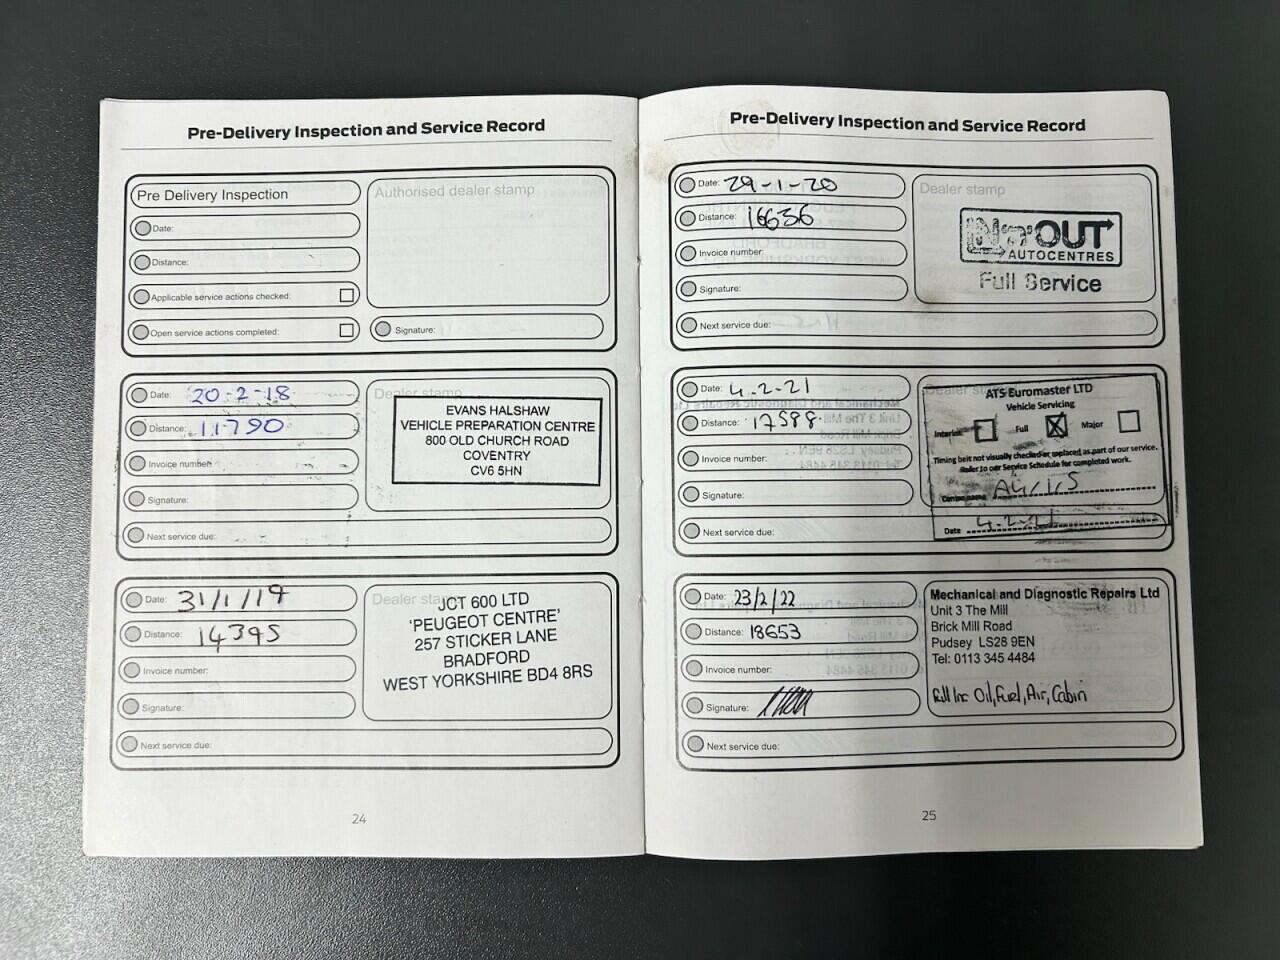 Pre-Delivery Inspection and Service Record
Pre Delivery Inspection
Date:
Distance:
Applicable service actions checked:
Open service actions completed:
Authorised dealer stamp
Signature:
Date: 20-2-18
Distance: 11790
Invoice number:
Signature:
Next service due:
Dealer stamp
EVANS HALSHAW
VEHICLE PREPARATION CENTRE
800 OLD CHURCH ROAD
COVENTRY
CV6 5HN
Date: 31/1/19
Distance: 14395
Invoice number:
Signature:
Next service due:
Dealer stamp
JCT 600 LTD
'PEUGEOT CENTRE'
257 STICKER LANE
BRADFORD
WEST YORKSHIRE BD4 8RS
24
Pre-Delivery Inspection and Service Record
Date: 29-1-20
Distance: 16636
Invoice number:
Signature:
Next service due:
Dealer stamp
IN'n'OUT
AUTOCENTRES
Full Service
Date: 4.2.21
Distance: 17588
Invoice number:
Signature:
Next service due:
Dealer stamp
ATS Euromaster LTD
Vehicle Servicing
Interim Full Major
Timing belt not visually checked or replaced as part of our service.
Refer to our Service Schedule for completed work.
Centre name
Date 4.2.21
Date: 23/2/22
Distance: 18653
Invoice number:
Signature:
Next service due:
Mechanical and Diagnostic Repairs Ltd
Unit 3 The Mill
Brick Mill Road
Pudsey LS28 9EN
Tel: 0113 345 4484
Full Inc Oil, Fuel, Air, Cabin
25